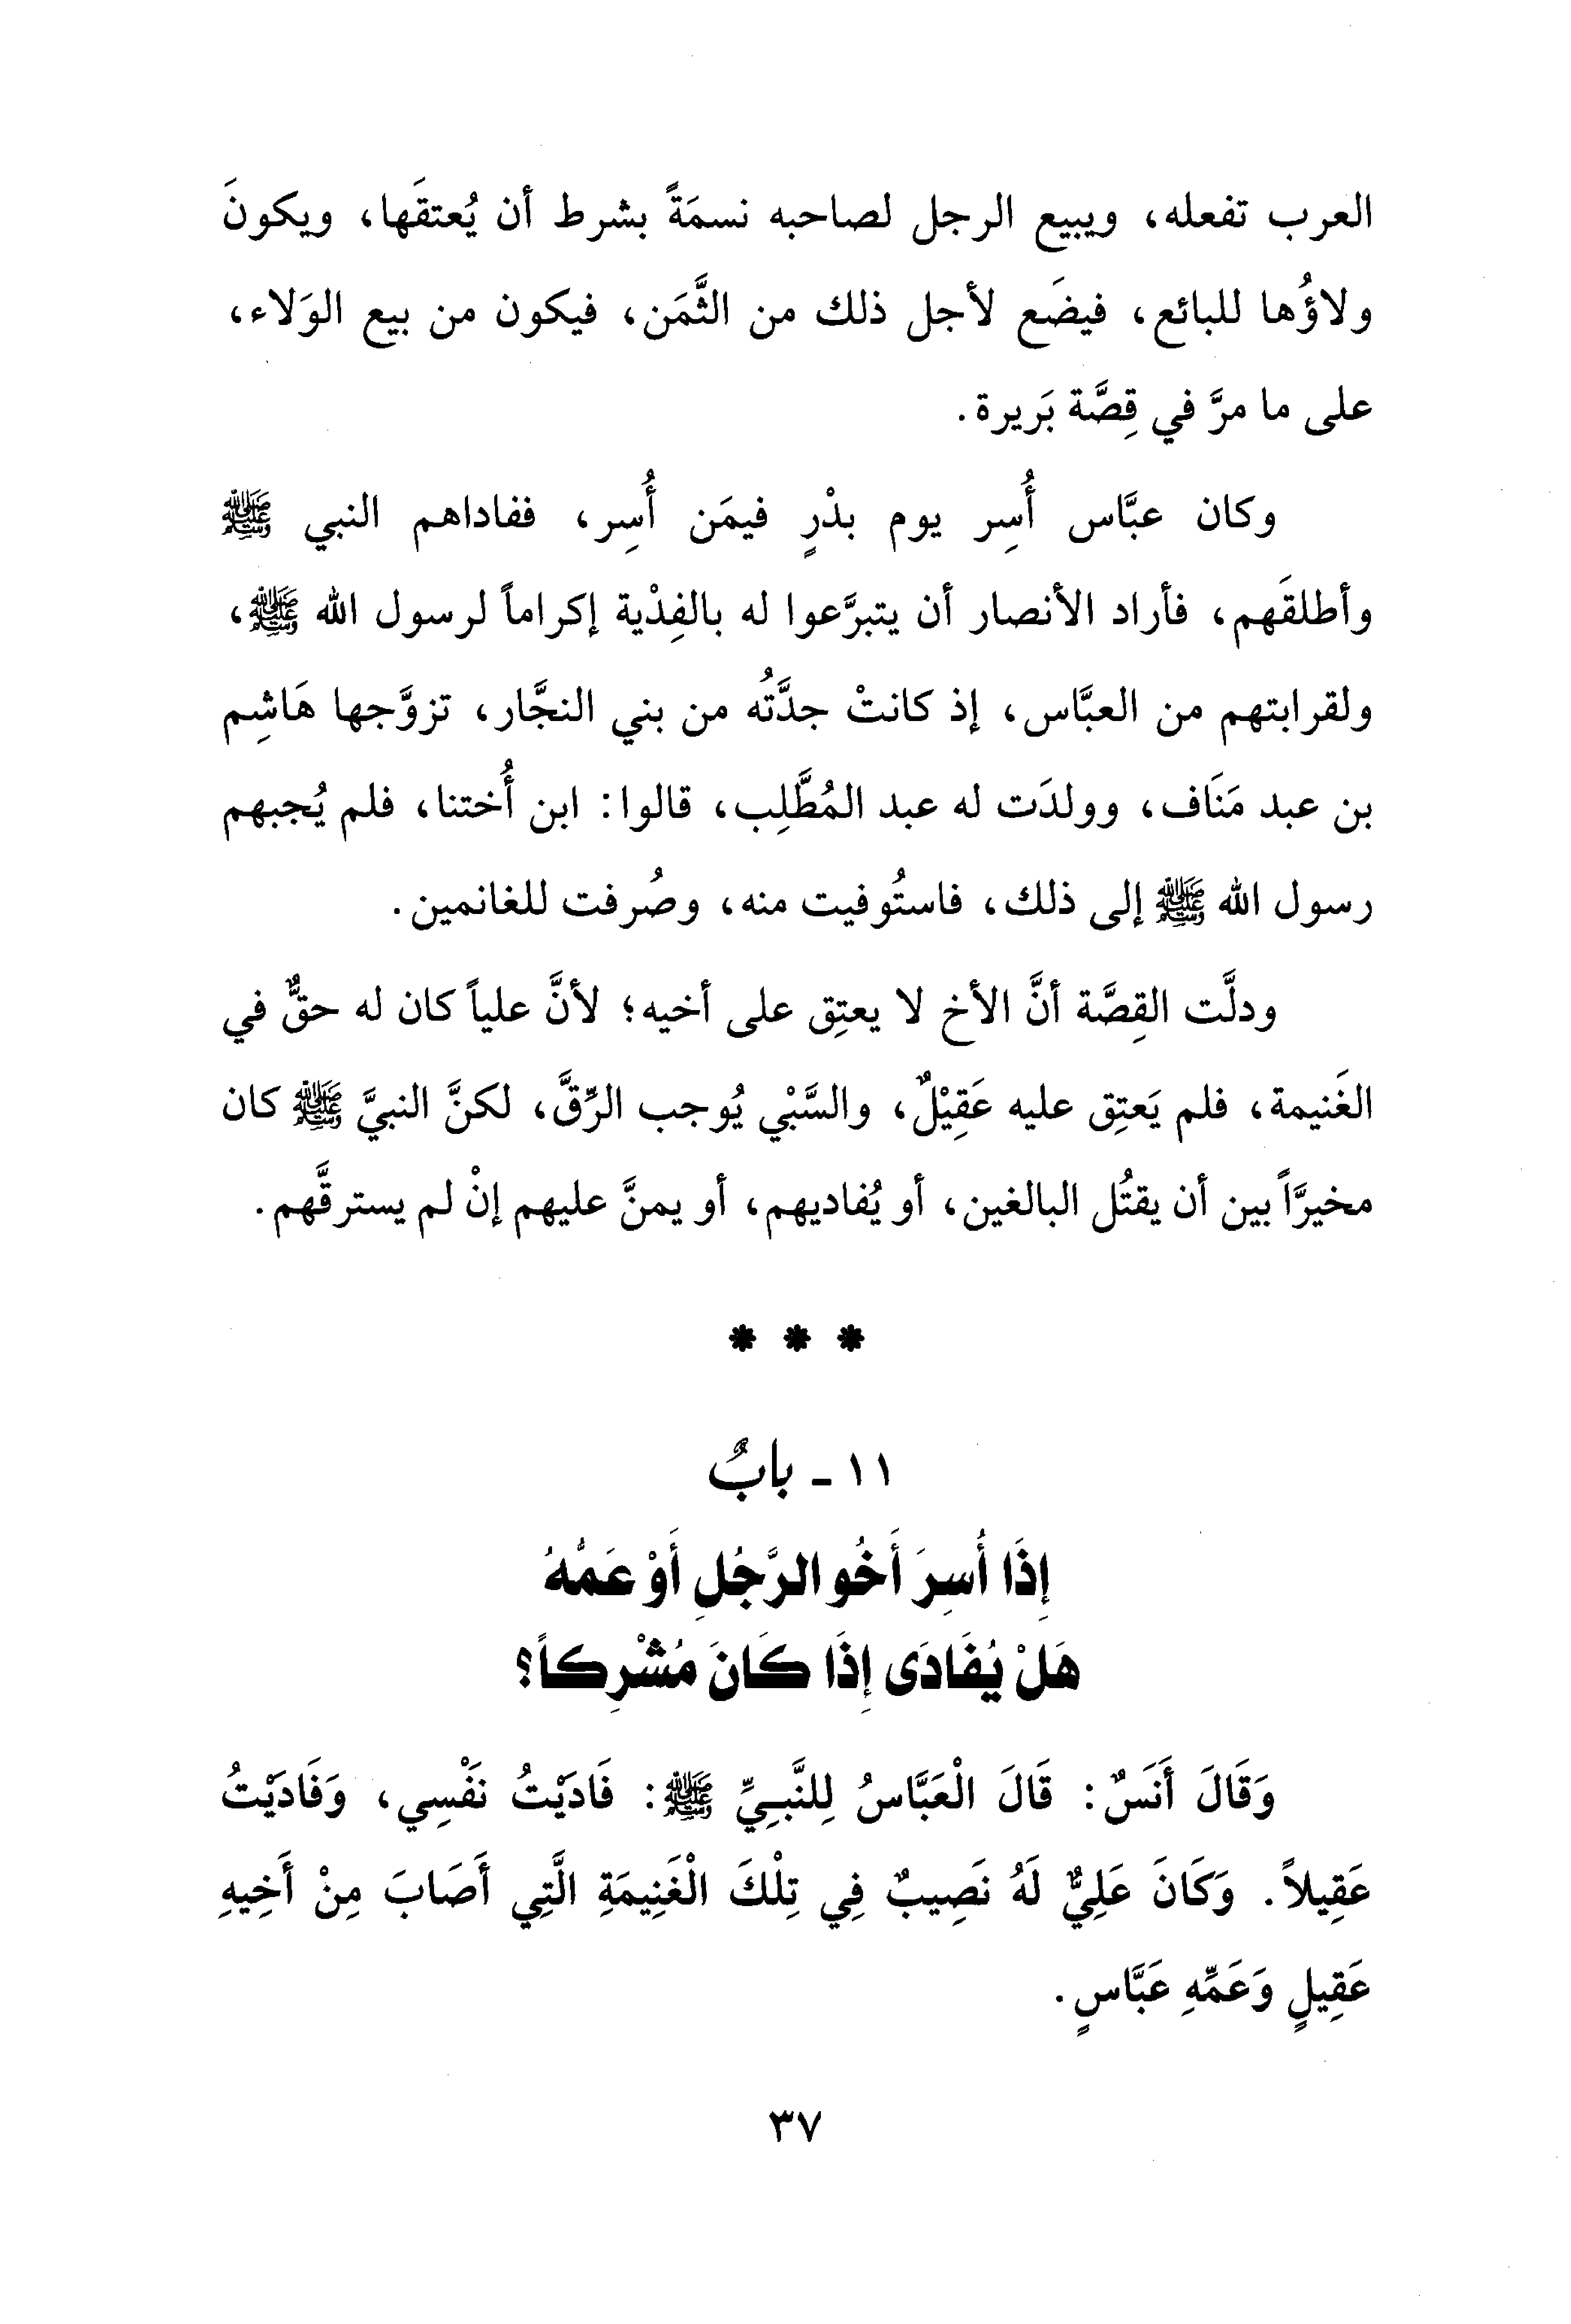 العرب تفعله، ويبيع الرجل لصاحبه نسمَةً بشرط أن يُعتقَها، ويكونَ
ولاؤُها للبائع، فيضَع لأجل ذلك من الثَّمَن، فيكون من بيع الوَلاء،
على ما مرَّ في قِصَّة بَريرة.
وكان عبَّاس أُسِر يوم بدْرٍ فيمَن أُسِر، ففاداهم النبي ﷺ
وأطلقَهم، فأراد الأنصار أن يتبرَّعوا له بالفِدْية إكراماً لرسول الله ﷺ،
ولقرابتهم من العبَّاس، إذ كانتْ جدَّتُه من بني النجَّار، تزوَّجها هَاشِم
بن عبد مَنَاف، وولدَت له عبد المُطَّلِب، قالوا: ابن أُختنا، فلم يُجبهم
رسول الله ﷺ إلى ذلك، فاستُوفيت منه، وصُرفت للغانمين.
ودلَّت القِصَّة أنَّ الأخ لا يعتِق على أخيه؛ لأنَّ علياً كان له حقٌّ في
الغَنيمة، فلم يَعتِق عليه عَقِيْلٌ، والسَّبْي يُوجب الرِّقَّ، لكنَّ النبيَّ ﷺ كان
مخيرَّاً بين أن يقتُل البالغين، أو يُفاديهم، أو يمنَّ عليهم إنْ لم يسترقَّهم.
* * *
١١ - بابٌ
إِذَا أُسِرَ أَخُو الرَّجُلِ أَوْ عَمُّهُ
هَلْ يُفَادَى إِذَا كَانَ مُشْرِكاً؟
وَقَالَ أَنَسٌ: قَالَ الْعَبَّاسُ لِلنَّبِيِّ ﷺ: فَادَيْتُ نَفْسِي، وَفَادَيْتُ
عَقِيلاً. وَكَانَ عَلِيٌّ لَهُ نَصِيبٌ فِي تِلْكَ الْغَنِيمَةِ الَّتِي أَصَابَ مِنْ أَخِيهِ
عَقِيلٍ وَعَمِّهِ عَبَّاسٍ.
٣٧